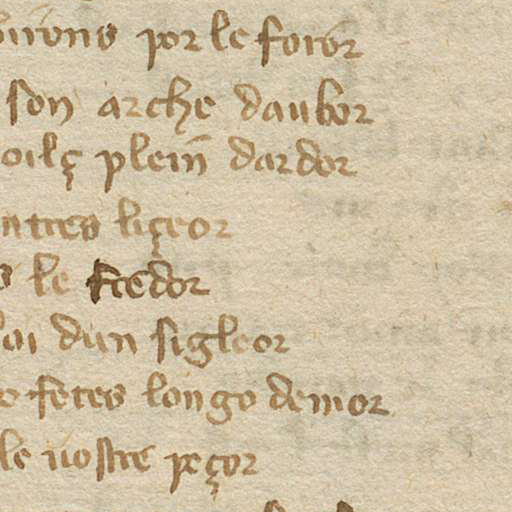 por le foror
son arche daubor
oilç plein dardor
ntres liçeor
s le fredor
oi dun sigleor
fetes longo demor
le nostre peçor